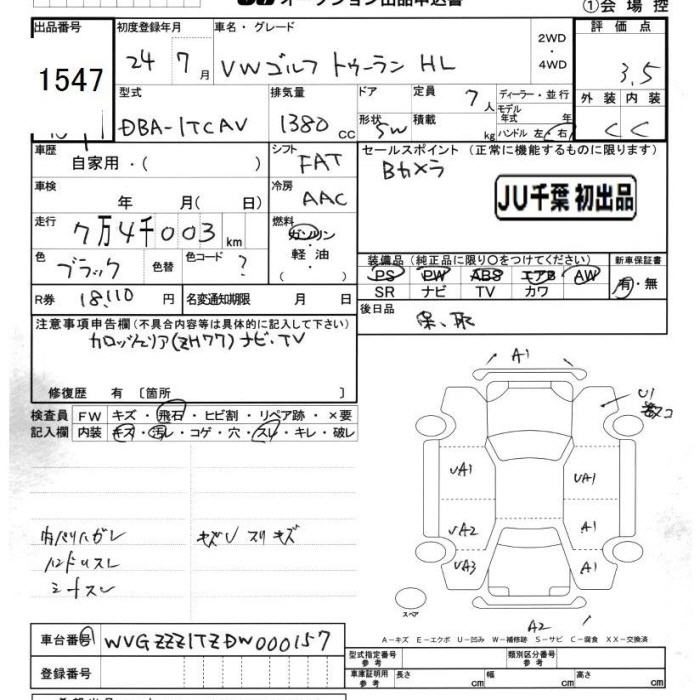 オークション出品申込書
①会場控
出品番号
1547
初度登録年月
24年 7月
車名・グレード
VWゴルフ トゥーラン HL
2WD
・
4WD
評価点
3.5
型式
DBA-1TCAV
排気量
1380 cc
ドア
形状
5W
定員 7人
積載 kg
ディーラー・並行
モデル
年式 年
ハンドル 左・右
外装 内装
C C
車歴
自家用・( )
シフト
FAT
セールスポイント (正常に機能するものに限ります)
Bカメラ
JU千葉 初出品
車検
年 月( 日)
冷房
AAC
走行
7万4千003km
燃料
ガソリン
・
軽油
( )
色
ブラック
色替
色コード
?
装備品 (純正品に限り○をつけてください)
PS PW ABS エアB AW
SR ナビ TV カワ
新車保証書
有・無
R券 18,110 円
名変通知期限 月 日
後日品
保、取
注意事項申告欄 (不具合内容等は具体的に記入して下さい)
カロッツェリア(ZH77) ナビ、TV
修復歴 有 〔箇所 〕
検査員
記入欄
FW キズ・飛石・ヒビ割・リペア跡・×要
内装 キズ・汚レ・コゲ・穴・スレ・キレ・破レ
内バリハガレ
ハンドルスレ
シートスレ
キズU スリキズ
A1
U1
UA1
UA1
UA2
A1
UA3
A1
スペア
A2
A-キズ E-エクボ U-凹み W-補修跡 S-サビ C-腐食 XX-交換済
車台番号
WVGZZZ1TZDW000157
登録番号
型式指定番号
参考
類別区分番号
参考
車庫証明用
参考
長さ cm
幅 cm
高さ cm